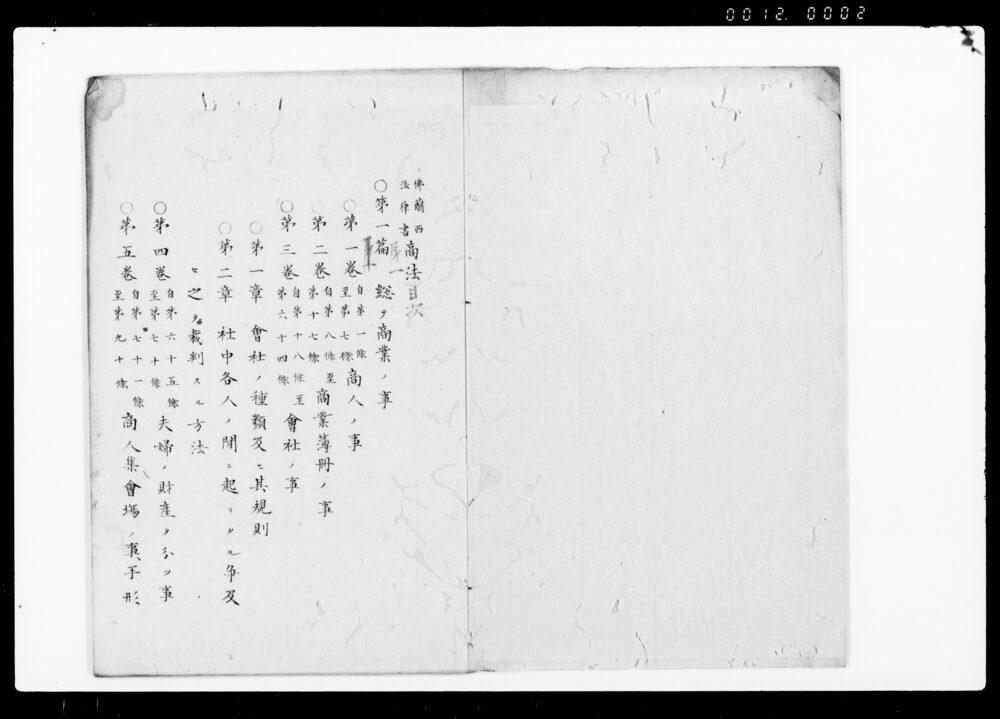 0012. 0002
佛蘭西法律書 商法目次
○第一篇 總テ商業ノ事
○第一卷 自第一條至第七條 商人ノ事
○第二卷 自第八條至第十七條 商業簿冊ノ事
○第三卷 自第十八條至第六十四條 會社ノ事
○第一章 會社ノ種類及ヒ其規則
○第二章 社中各人ノ間ニ起リタル争及
ヒ之ヲ裁判スル方法
○第四卷 自第六十五條至第七十條 夫婦ノ財産ヲ分ツ事
○第五卷 自第七十一條至第九十條 商人集會場ノ事、手形